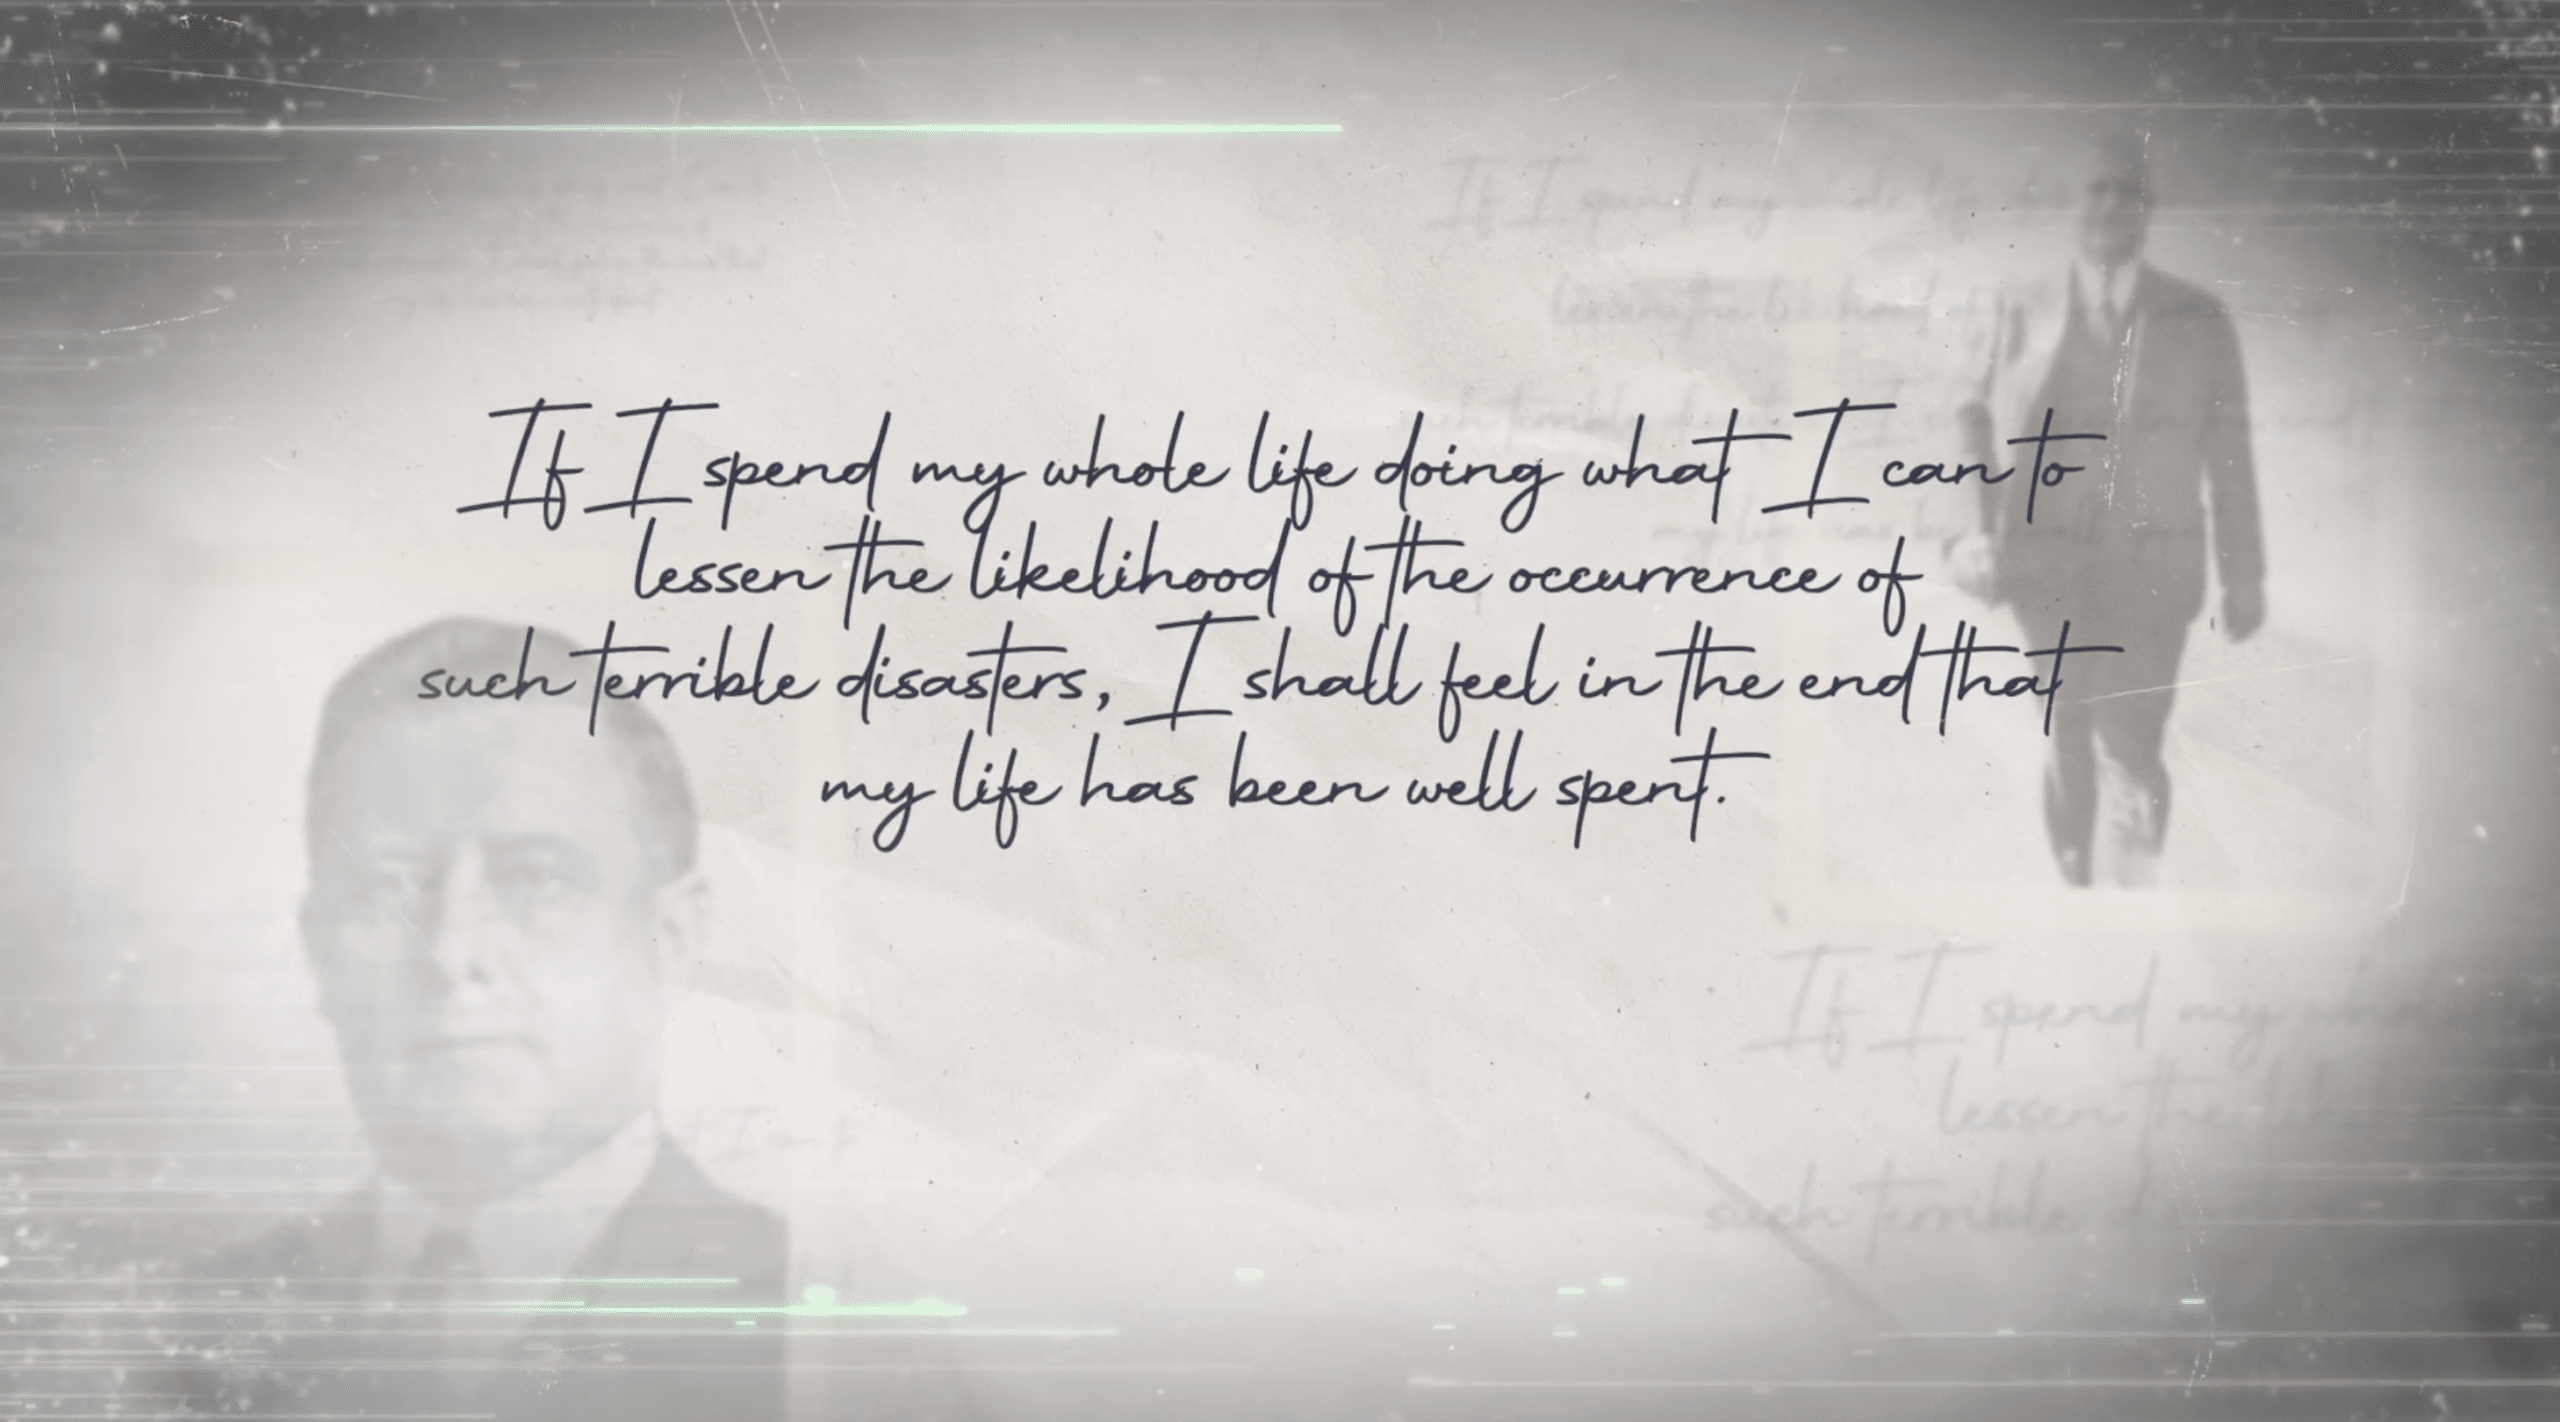 If I spend my whole life doing what I can to
lessen the likelihood of the occurrence of
such terrible disasters, I shall feel in the end that
my life has been well spent.
If I spend my
lessen the
such terrible